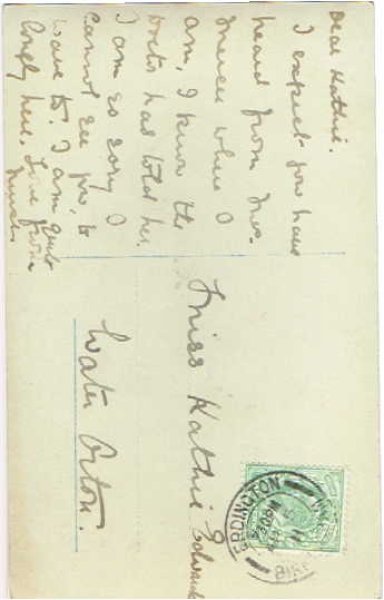 Dear Kathie.
I expect you have
heard from Mrs.
where I
am, I know the
Doctor has told her.
I am so sory I
cannot see you, to
wave to. I am quit
comfy here. Love from
Miss Kathie Edwards
Water Orton.
ERDINGTON